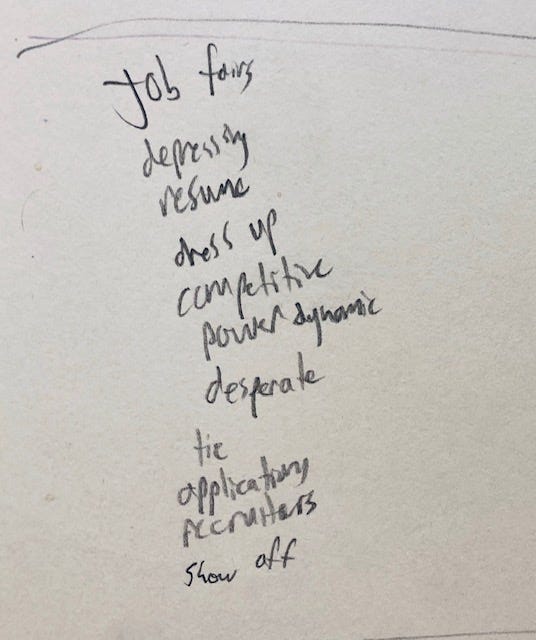 Job fairs
depressing
resume
dress up
competitive
power dynamic
desperate
tie
applications
recruiters
show off